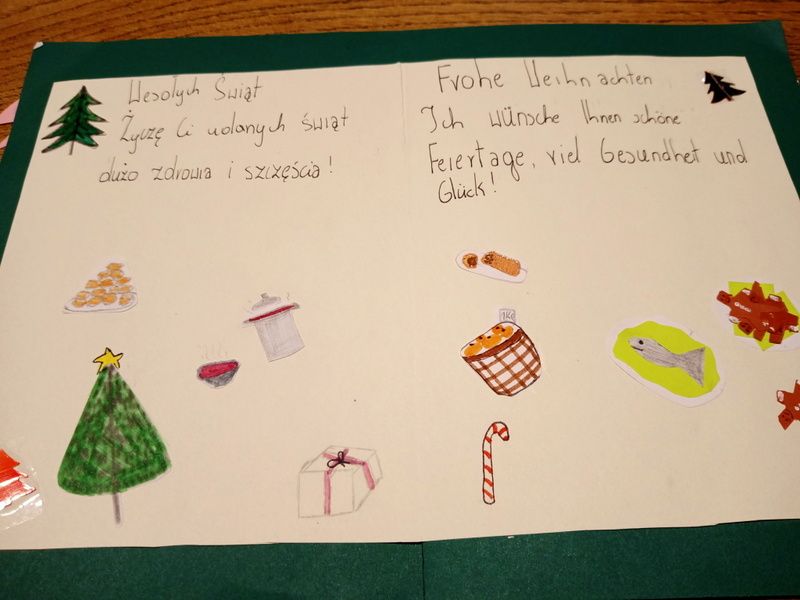 Wesołych Świąt
Życzę Ci udanych świąt
dużo zdrowia i szczęścia!
Frohe Weihnachten
Ich wünsche Ihnen schöne
Feiertage, viel Gesundheit und
Glück!